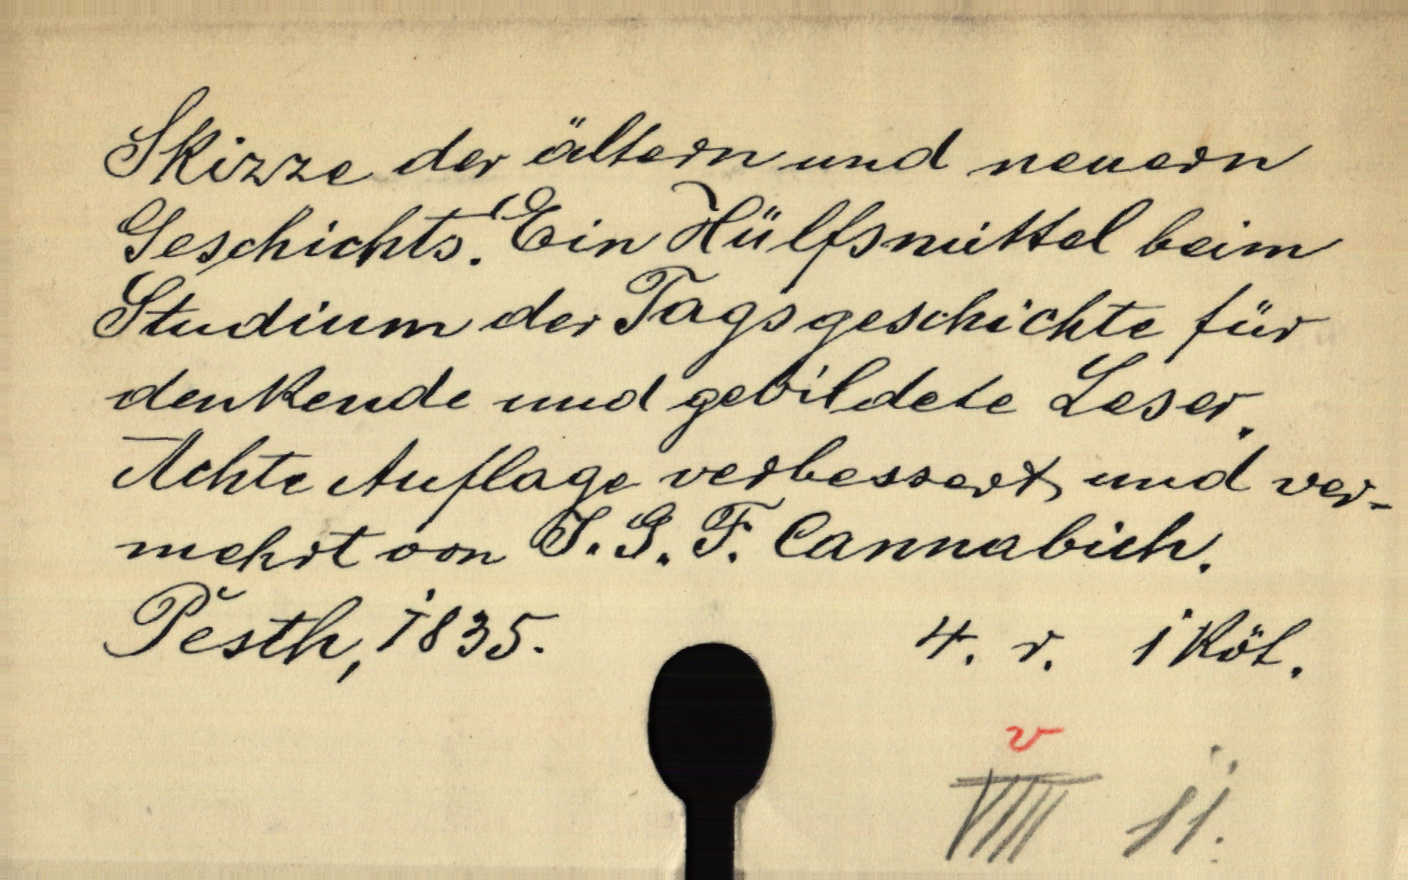 Skizze der ältern und neuern
Geschichts. Ein Hülfsmittel beim
Studium der Tagsgeschichte für
denkende und gebildete Leser.
Achte Auflage verbessert, und ver-
mehrt von J. G. F. Cannabich.
Pesth, 1835. 4. r. 1 Köt.
v
VIII 11.